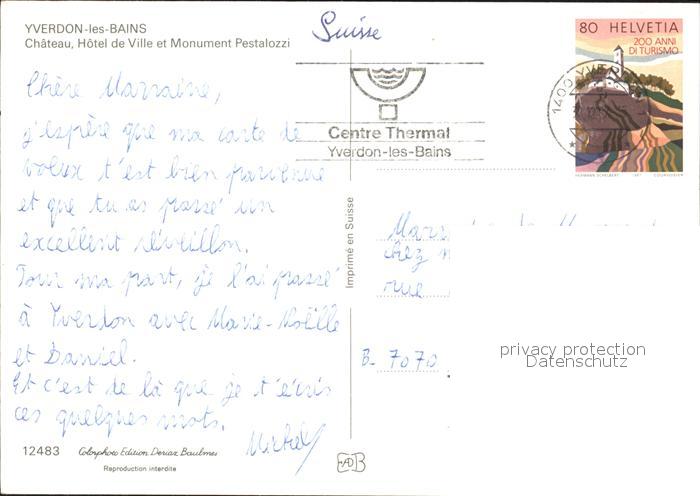 YVERDON-les-BAINS
Château, Hôtel de Ville et Monument Pestalozzi
Suisse
80 HELVETIA
200 ANNI
DI TURISMO
1400 YVERDON
Centre Thermal
Yverdon-les-Bains
HERMANN SCHELBERT 1987 COURVOISIER
Chère Marraine,
j'espère que ma carte de
voeux t'est bien parvenue
et que tu as passé un
excellent réveillon.
Pour ma part, je l'ai passé
à Yverdon avec Marie-Noëlle
et Daniel.
Et c'est de là que je t'écris
ces quelques mots.
Michel
Imprimé en Suisse
chez
rue
B-7070
privacy protection
Datenschutz
12483 Colorphoto Edition Deriaz Baulmes
Reproduction interdite